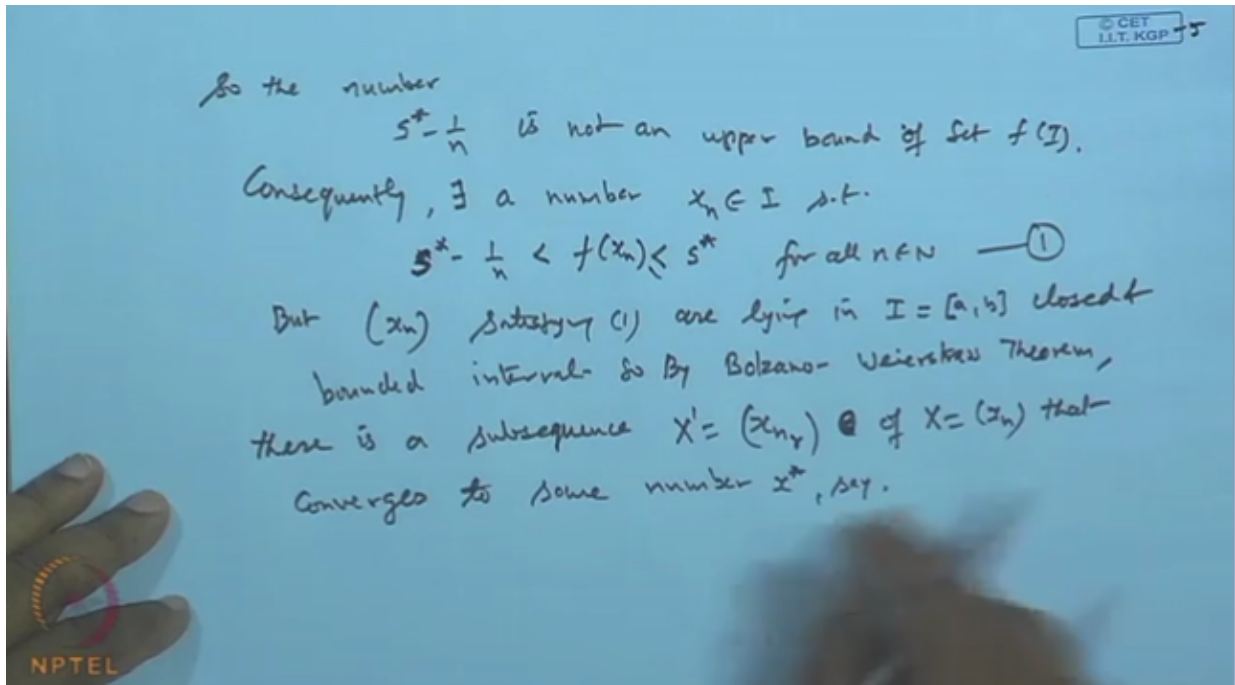 © CET
I.I.T. KGP -5
So the number
s* - 1/n is not an upper bound of set f(I).
Consequently, ∃ a number xₙ ∈ I s.t.
s* - 1/n < f(xₙ) ≤ s* for all n ∈ N — ①
But (xₙ) satisfying (1) are lying in I = [a, b] closed &
bounded interval. So By Bolzano-Weierstrass Theorem,
there is a subsequence X' = (x_{n_r}) of X = (xₙ) that
converges to some number x*, say.
NPTEL